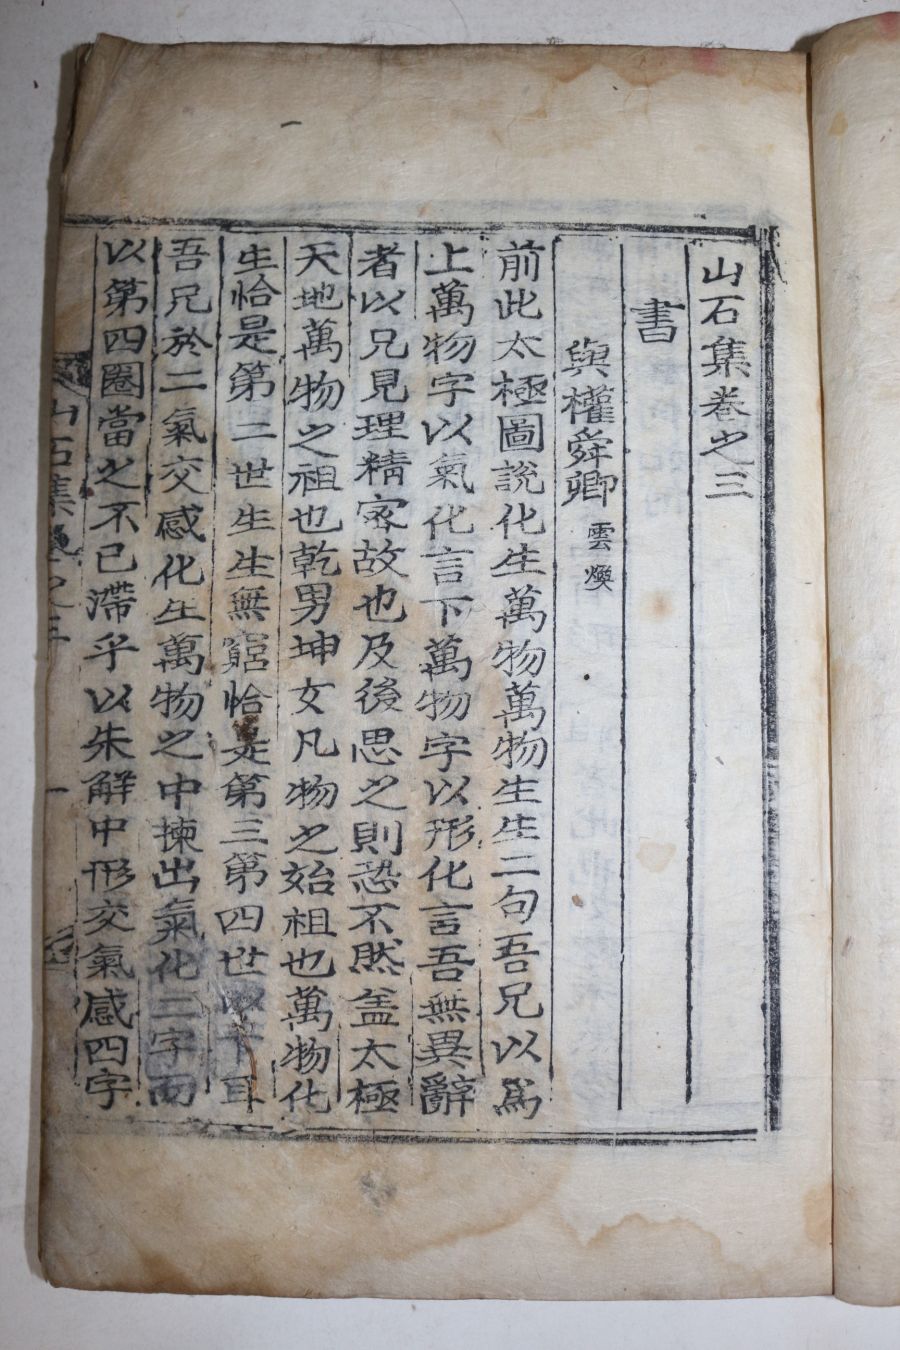 山石集卷之三
書
與權舜卿 雲煥
前此太極圖說化生萬物萬物生生二句吾兄以爲
上萬物字以氣化言下萬物字以形化言吾無異辭
者以兄見理精密故也及後思之則恐不然盖太極
天地萬物之祖也乾男坤女凡物之始祖也萬物化
生恰是第二世生生無窮恰是第三第四世以下耳
吾兄於二氣交感化生萬物之中揀出氣化二字而
以第四圈當之不已滯乎以朱解中形交氣感四字
山石集卷之三 一